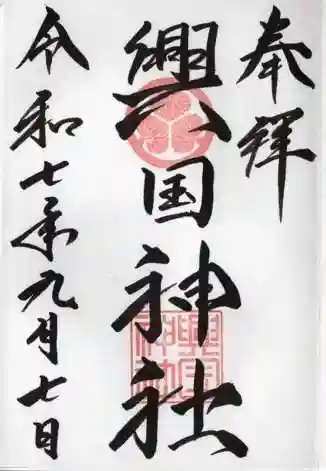 奉拝
興国神社
令和七年九月七日
興国神社